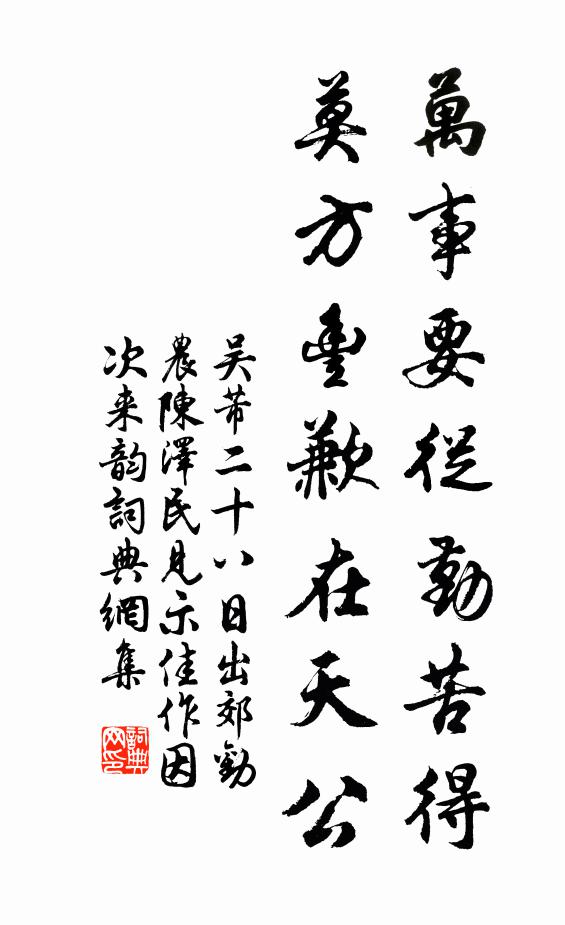 萬事要從勤苦得
莫方豐歉在天公
吴芾二十八日出郊勸
農陳澤民見示佳作因
次来韵詞典網集
詞典网印